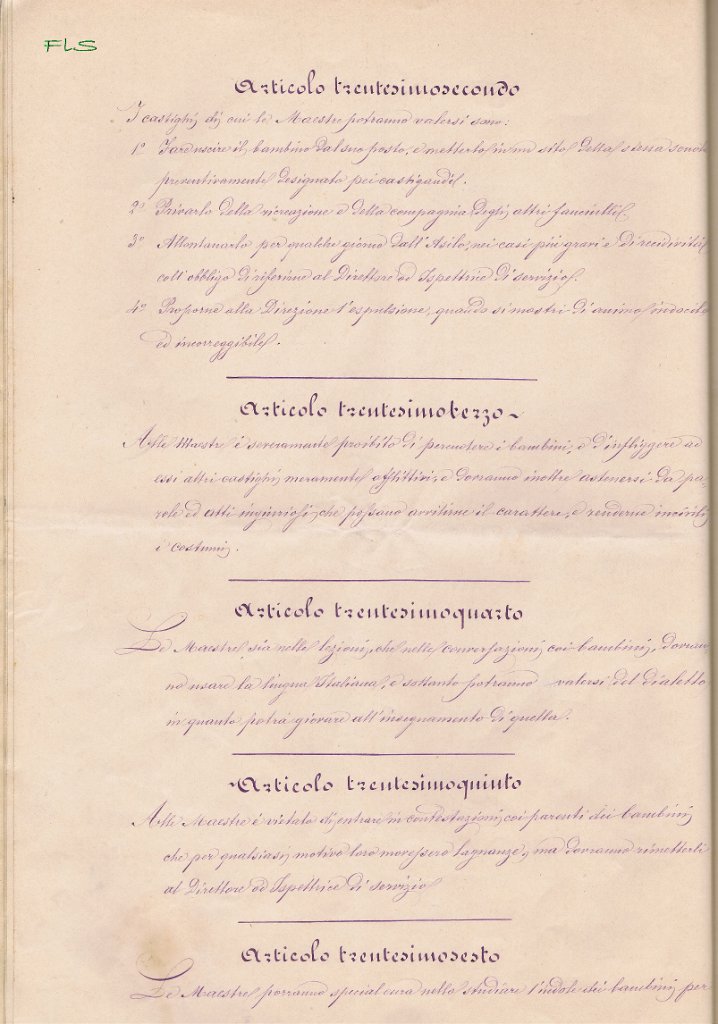 FLS
Articolo trentesimosecondo
I castighi di cui le Maestre potranno valersi sono:
1º Far uscire il bambino dal suo posto, e metterlo in un sito della stessa scuola
preventivamente designato pei castigandi.
2º Privarlo della ricreazione e della compagnia degli altri fanciulli.
3º Allontanarlo per qualche giorno dall'Asilo, nei casi più gravi e di recidività
coll'obbligo di riferirne al Direttore od Ispettrice di servizio.
4º Proporne alla Direzione l'espulsione, quando si mostri di animo indocile
ed incorreggibile.
Articolo trentesimoterzo
Alle Maestre è severamente proibito di percuotere i bambini, e d'infliggere ad
essi altri castighi meramente afflittivi, e dovranno inoltre astenersi da pa-
role ed atti ingiuriosi, che possano avvilirne il carattere, e renderne incivili
i costumi.
Articolo trentesimoquarto
Le Maestre sia nelle lezioni, che nelle conversazioni coi bambini, dovran-
no usare la lingua Italiana, e soltanto potranno valersi del dialetto
in quanto potrà giovare all'insegnamento di quella.
Articolo trentesimoquinto
Alle Maestre è vietato di entrare in contestazioni coi parenti dei bambini
che per qualsiasi motivo loro movessero lagnanze, ma dovranno rimetterli
al Direttore od Ispettrice di servizio
Articolo trentesimosesto
Le Maestre porranno special cura nello studiare l'indole dei bambini per